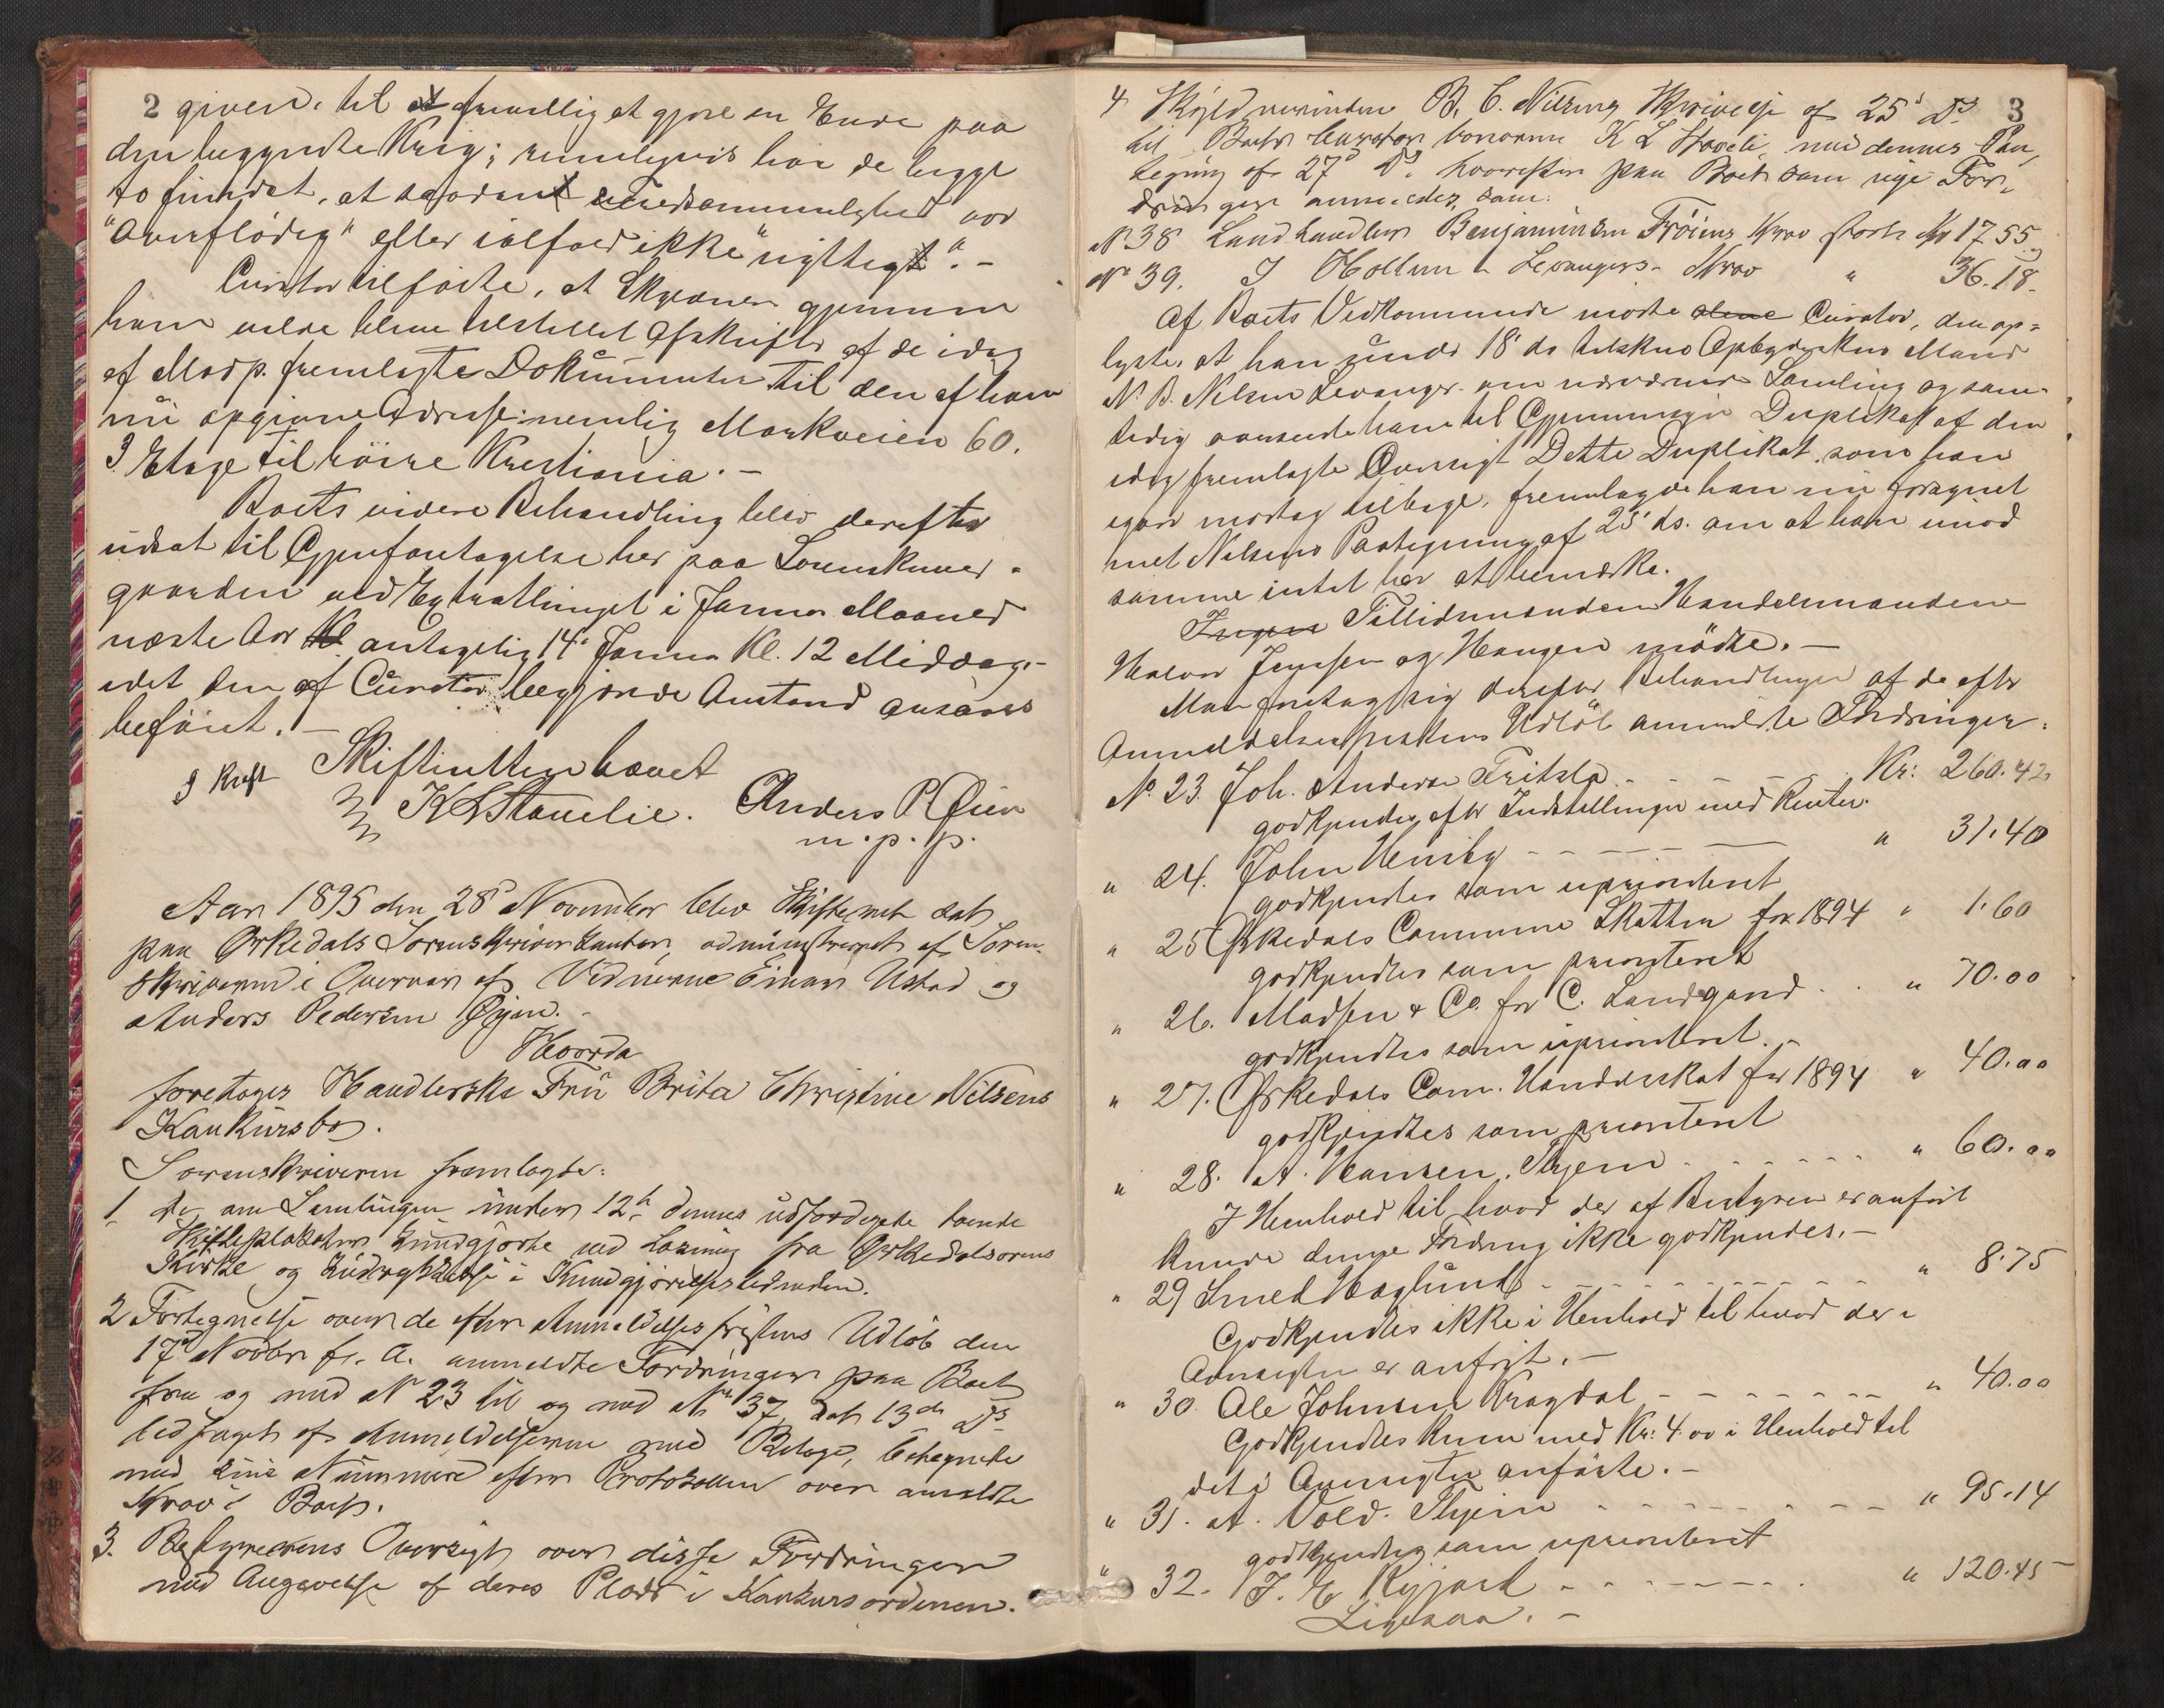 2 given til at frivillig at gjøre en Ende paa
den begyndte Krig; rimeligvis har de begge
to fundet, at saadant var
"Overflödig" eller ialfald ikke "rigtigt". -
Curator tilførte, at Skyldneren gjennem
ham vilde blive tilstillet Afskrifter af de idag
af Modp. fremlagte Dokumenter til den af ham
nu opgivne Adresse: nemlig Markveien 60.
3 Etage til höire Kristiania. -
Boets videre Behandling blev derefter
udsat til Gjenforetagelse her paa Sorenskriver-
gaarden ved Extrathinget i Januar Maaned
næste Aar Kl antagelig 14de Januar Kl. 12 Middag -
idet den af Curator begjærede Anstand ansaaes
beføiet. -
Skifteretten hævet
J Kraft
K L Stavelie. Anders P. Øien
m. p. p.
Aar 1895 den 28de November blev Skifteret sat
paa Ørkedals Sorenskriverkontor, administreret af Soren-
skriveren i Overvær af Vidnerne Einar Ustad og
Anders Pedersen Øyen. -
Hvorda
foretoges Handlerske Fru Brita Christine Nilsens
Konkursbo.
Sorenskriveren fremlagde:
1 de om Samlingen under 12te dennes udfærdigede tvende
Skifteplakater kundgjorte ved Læsning fra Ørkedalsørens
Kirke og Indrykkelse i Kundgjørelsestidenden.
2 Fortegnelse over de efter Anmeldelsesfristens Udløb den
17de Novbr f. A. anmeldte Fordringer paa Boet
fra og med No 23 til og med No 37, dat 13de Ds
ledsaget af Anmeldelserne med Bilage, betegnede
med sine Numere efter Protokollen over anmeldte
Krav i Boet.
3. Bestyrerens Oversigt over disse Fordringer
med Angivelse af deres Plads i Konkursordenen.
3
4 Skyldnerinden B. C. Nilsens Skrivelse af 25de Ds
til Boets Curator bonorum K L Stavelie, med dennes Paa-
tegning af 27de Ds. hvorefter paa Boet som nye For-
dringer anmeldes, som:
No 38 Landhandler Benjaminsen Fröiens Krav stort Kr 17 55
No 39. J Hollum Levangers Krav " 36.18.
Af Boets Vedkommende mødte alene Curator, der op-
lyste, at han under 18de ds tilskrev Opbyderskens Mand
N. B. Nilsen Levanger om nærværende Samling og sam-
tidig oversendte ham til Gjennemsyn Duplikat af den
idag fremlagte Oversigt Dette Duplikat, som han
igaar modtog tilbage, fremlagde han nu forsynet
med Nilsens Paategning af 25de ds. om at han imod
samme intet har at bemærke.
Ingen Tillidsmændene Handelsmændene
Halvor Jenssen og Haugen mödte. -
Man foretog sig derefter Behandlingen af de efter
Anmeldelsesfristens Udlöb anmeldte Fordringer:
No. 23. Joh. Andersen Fritsla - - - - - Kr: 260.42
godkjendes efter Indstillingen med Renter.
" 24. John Hemby - - - - - " 31.40
godkjendtes som uprioriteret
" 25 Ørkedals Commune Skatten for 1894 " 1.60
godkjendtes som prioriteret
" 26. Madsen & Co. for C. Landgaard . . " 70.00
godkjendtes som uprioriteret. -
" 27. Ørkedals Com. Hundeskat for 1894 " 40.00
godkjendtes som prioriteret
" 28. A. Hansen, Thjem . . . . . . " 60.00
I Henhold til hvad der af Bestyreren er anført
kunde denne Fordring ikke godkjendes. -
" 29 Smed Haglund - - - - - - - - " 8.75
Godkjendtes ikke i Henhold til hvad der i
Oversigten er anført. -
" 30. Ole Johnsen Kragdal - - - - - - - " 40.00
Godkjendtes kun med Kr: 4.00 i Henhold til
det i Oversigten anførte. -
" 31. A. Vold. Thjem - - - - - - - - " 95.14
godkjendtes som uprioriteret
" 32. J. E - - - - - - - " 120.45
Ligesaa. -